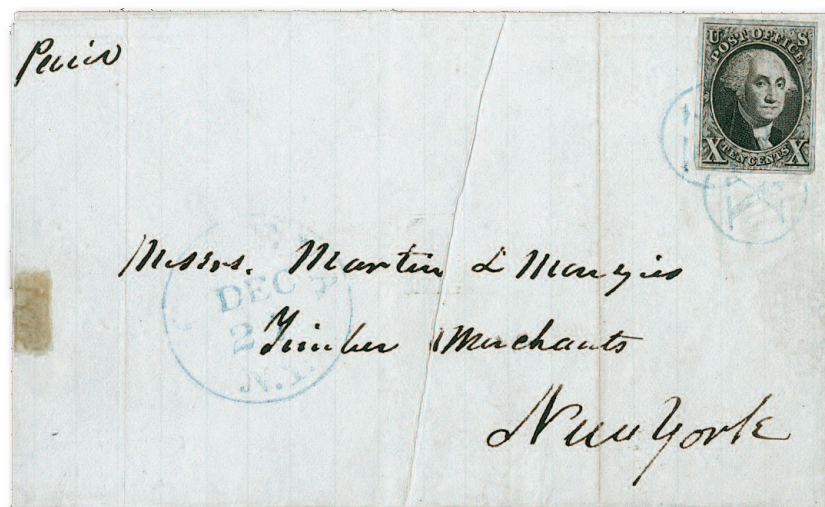 Paid
U S
POST OFFICE
X TEN CENTS X
Messrs. Martin &
DEC
2
Timber Merchants
N.Y.
New York